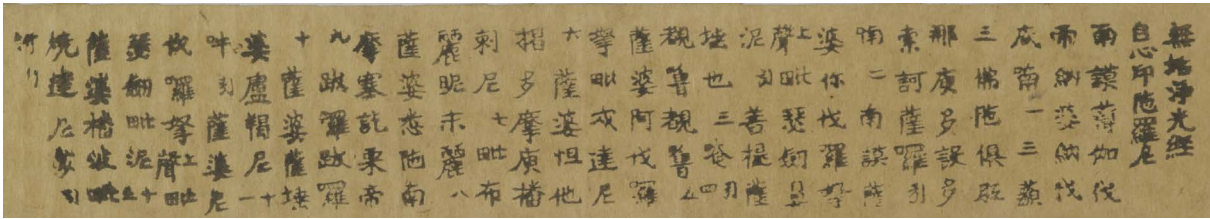 無垢淨光經
自心印陀羅尼
南謨薄伽伐
帝納婆納伐
底喃一三藐
三佛陁俱胝
那庾多設多
索訶薩羅引
喃二南謨薩
婆你伐羅拏
上聲毗瑟劒鼻
泥引菩提薩
埵也三唵引四
覩魯覩魯五
薩婆阿伐羅
拏毗戍達尼
六薩婆怛他
揭多摩庾播
剌尼七毗布
麗昵末麗八
薩婆悉陁南
摩塞訖栗帝
九跋羅跋羅
十薩婆薩埵
婆盧羯尼十一
吽引薩婆尼
伐羅拏上聲毗
瑟劒毗泥十二
薩婆播波毗
燒達尼莎引
訶引